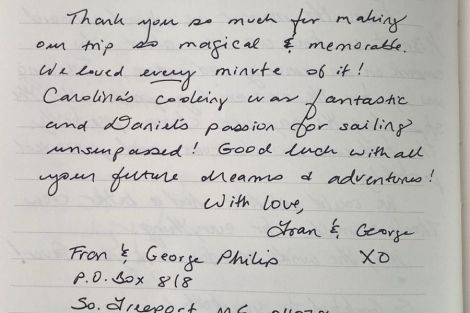 Thank you so much for making
our trip so magical & memorable.
We loved every minute of it!
Carolina's cooking was fantastic
and Daniel's passion for sailing
unsurpassed! Good luck with all
your future dreams & adventures!
With love,
Fran & George
XO
Fran & George Philip
P.O. Box 818
So. Freeport